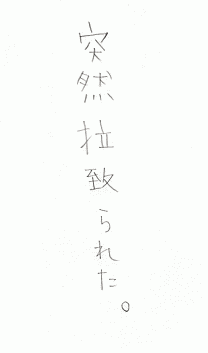 突然拉致られた。